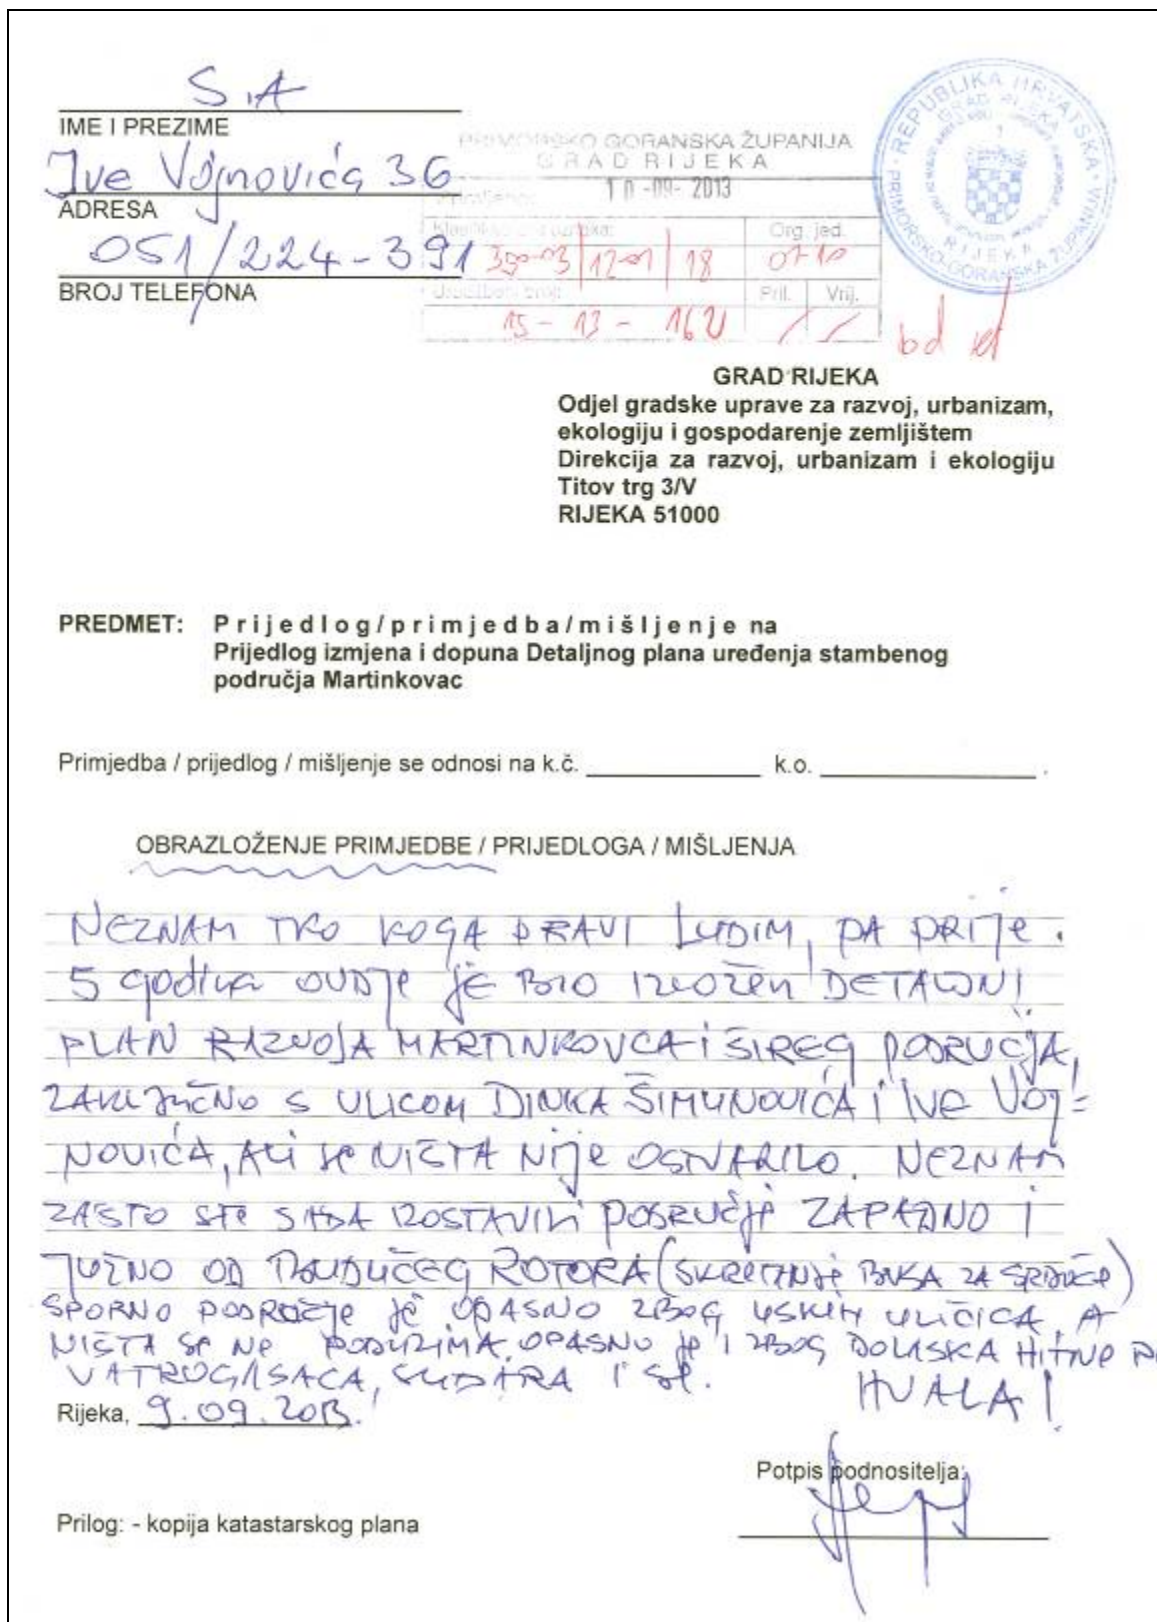 S.A
IME I PREZIME
Ive Vojnovića 36
ADRESA
051/224-391
BROJ TELEFONA
PRIMORSKO GORANSKA ŽUPANIJA
GRAD RIJEKA
10-09-2013
Org. jed.
350-03/12-01/18
Pril. Vrij.
15-13-
REPUBLIKA HRVATSKA
PRIMORSKO-GORANSKA ŽUPANIJA
GRAD RIJEKA
RIJEKA
GRAD RIJEKA
Odjel gradske uprave za razvoj, urbanizam,
ekologiju i gospodarenje zemljištem
Direkcija za razvoj, urbanizam i ekologiju
Titov trg 3/V
RIJEKA 51000
PREDMET: Prijedlog/primjedba/mišljenje na
Prijedlog izmjena i dopuna Detaljnog plana uređenja stambenog
područja Martinkovac
Primjedba / prijedlog / mišljenje se odnosi na k.č. k.o. .
OBRAZLOŽENJE PRIMJEDBE / PRIJEDLOGA / MIŠLJENJA
NEZNAM TKO KOGA PRAVI LUDIM, PA PRIJE
5 godina OVDJE JE BIO IZLOŽEN DETALJNI
PLAN RAZVOJA MARTINKOVCA I ŠIREG PODRUČJA,
ZAKLJUČNO S ULICOM DINKA ŠIMUNOVIĆA I IVE VOJ=
NOVIĆA, ALI SE NIŠTA NIJE OSTVARILO. NEZNAM
ZAŠTO STE SADA IZOSTAVILI PODRUČJE ZAPADNO I
JUŽNO OD BUDUĆEG ROTORA (SKRETANJE BUSA ZA SRDOČE)
SPORNO PODRUČJE JE OPASNO ZBOG USKIH ULIČICA, A
NIŠTA SE NE PODUZIMA. OPASNO JE I ZBOG DOLASKA HITNE
VATROGASACA, SUDARA I SL. HVALA!
Rijeka, 9.09.2013.
Potpis podnositelja:
Prilog: - kopija katastarskog plana